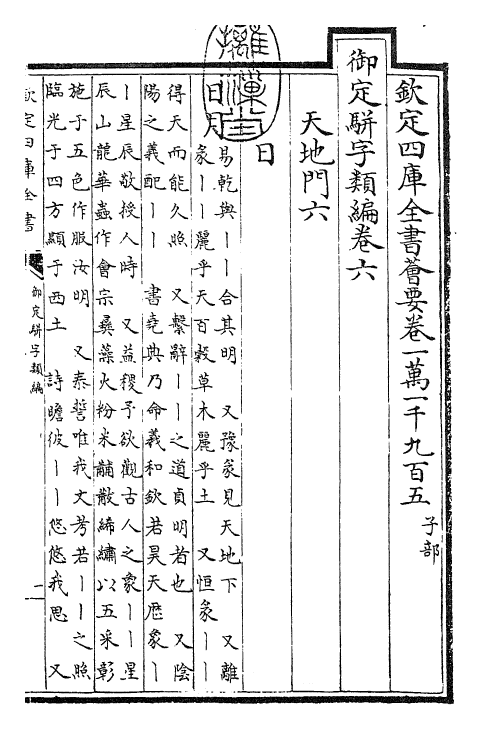 欽定四庫全書薈要卷一萬一千九百五 子部
御定駢字類編卷六
天地門六
日
日月 易乾與丨丨合其明 又豫象見天地下 又離
象丨丨麗乎天百穀草木麗乎土 又恒象丨丨
得天而能久照 又繫辭丨丨之道貞明者也 又陰
陽之義配丨丨 書堯典乃命羲和欽若昊天歷象丨
丨星辰敬授人時 又益稷予欲觀古人之象丨丨星
辰山龍華蟲作會宗彝藻火粉米黼黻絺繡以五采彰
施于五色作服汝明 又泰誓唯我文考若丨丨之照
臨光于四方顯于西土 詩瞻彼丨丨悠悠我思 又
欽定四庫全書
御定駢字類編
一